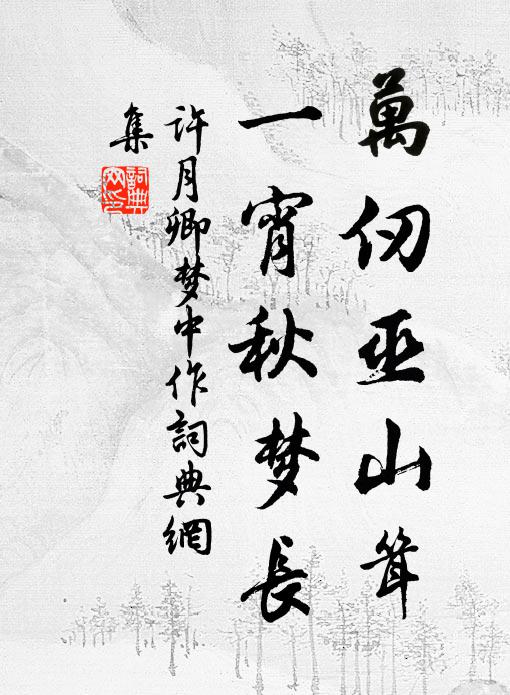 萬仞巫山耸
一宵秋梦長
许月卿梦中作詞典網
集
詞典
网印